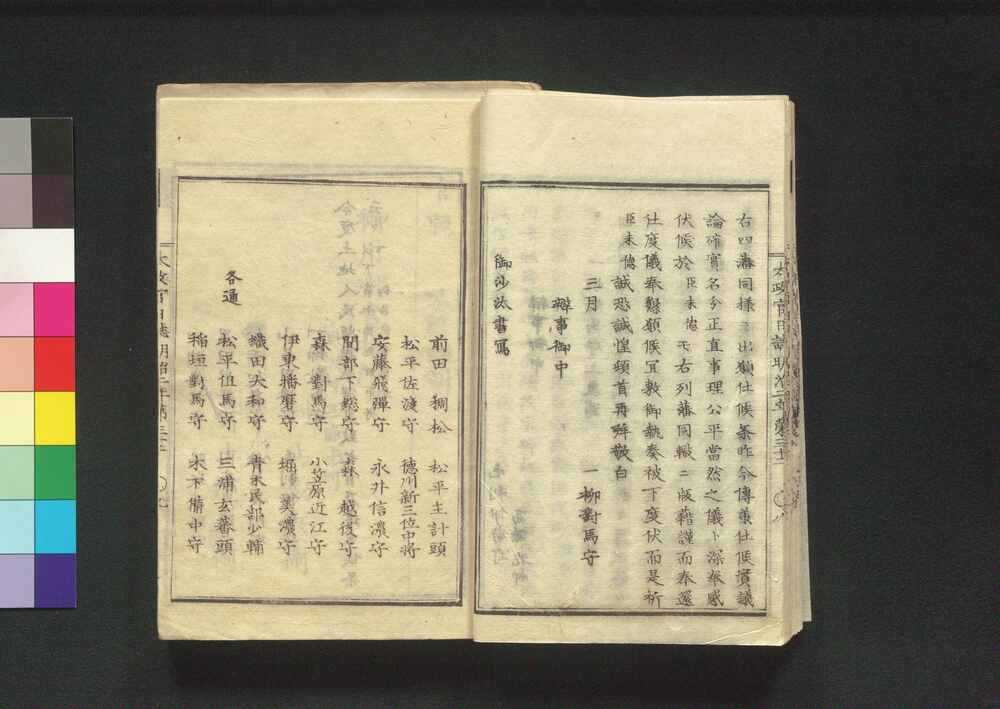 右四藩同様差出願仕候条昨今傳兼仕候實議
論確實名分正直事理公平當然之儀ト深奉感
伏候於臣末徳モ右列藩同轍ニ版藉謹而奉還
仕度儀奉懇願候冝敷御執奏被下度伏而是祈
臣末徳誠恐誠惶頓首再拜敬白
三月 一柳對馬守
辨事御中
御沙汰書寫
太政官日誌明治二年第三十
前田稠松 松平主計頭
松平佐渡守 徳川新三位中将
安藤飛彈守 永井信濃守
間部下総守 本荘越後守
森對馬守 小笠原近江守
伊東播磨守 堀美濃守
織田大和守 青木民部少輔
松平但馬守 三浦玄蕃頭
稲垣對馬守 木下備中守
各通
太政官日誌明治二年第三十